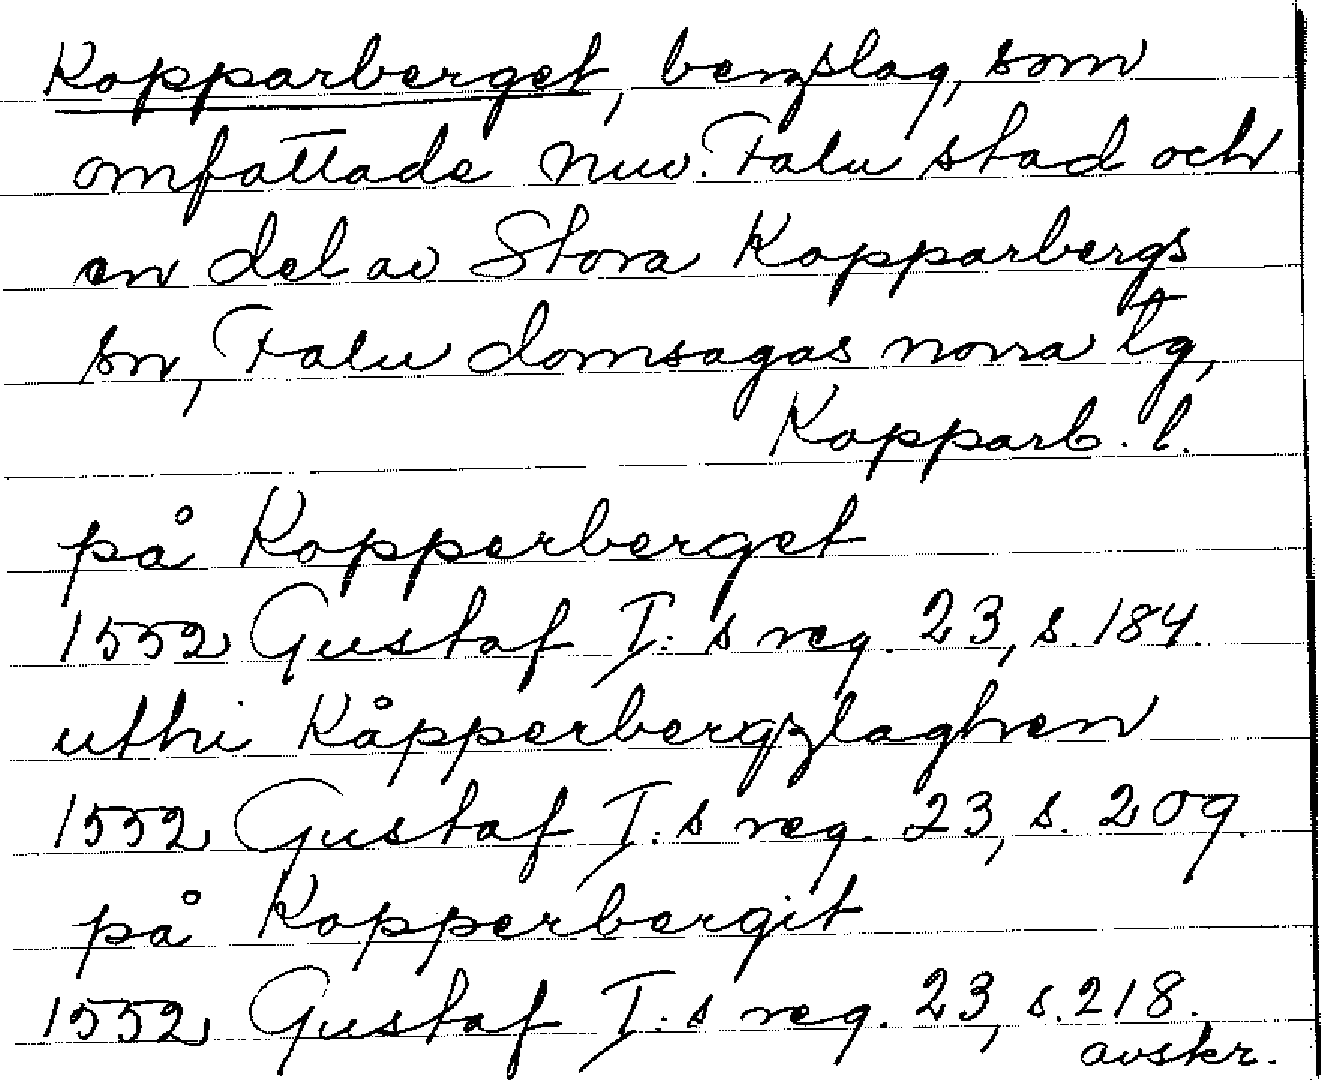 Kopparberget, bergslag, som
omfattade nuv. Falu stad och
en del av Stora Kopparbergs
sn, Falu domsagas norra tg,
Kopparb. l.
på Kopperberget
1552 Gustaf I:s reg. 23, s. 184.
uthi Kåpperbergzlaghen
1552 Gustaf I:s reg. 23, s. 209.
på Kopperbergit
1552 Gustaf I:s reg. 23, s. 218.
avskr.